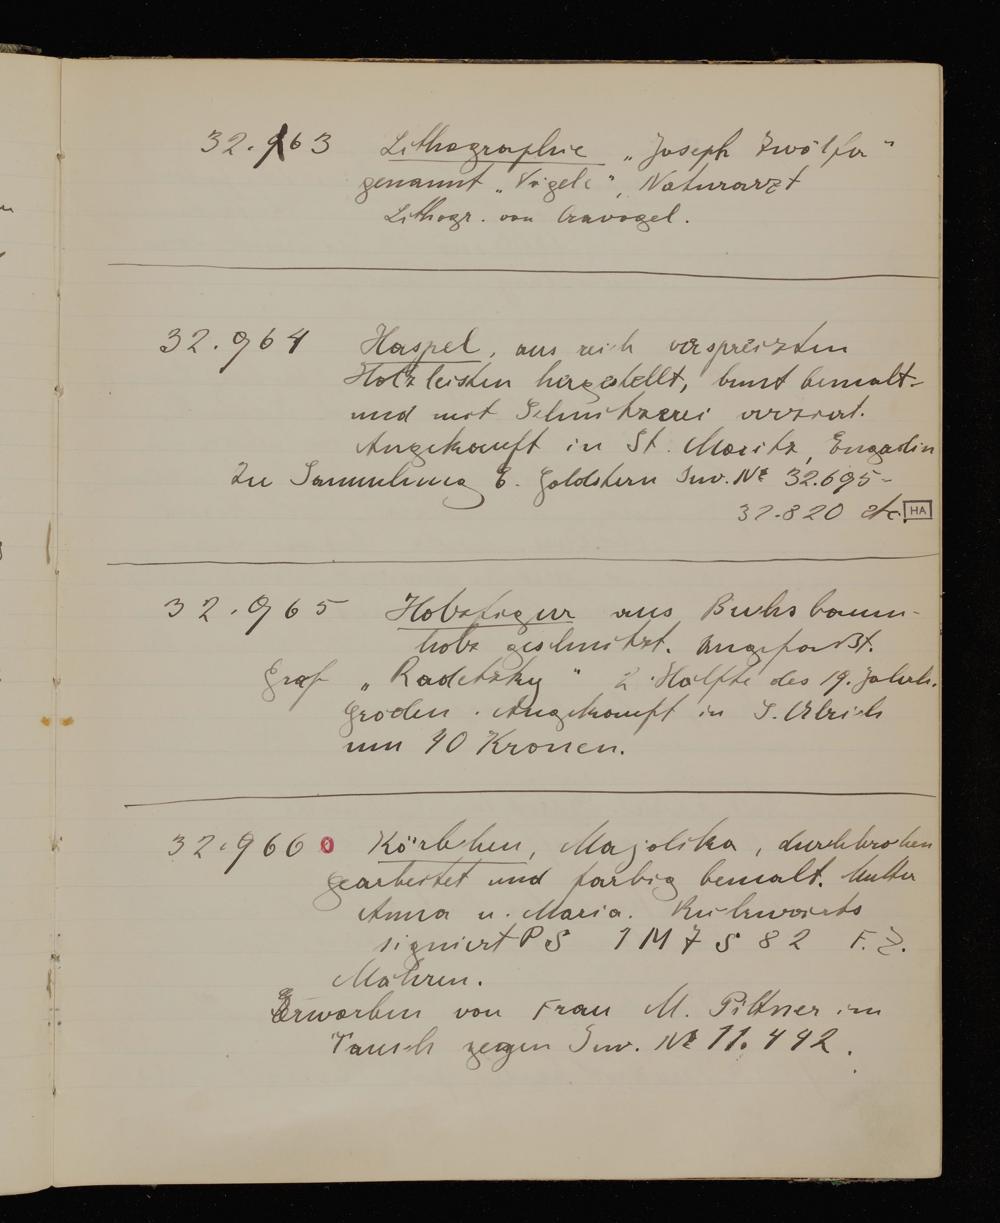 32.963 Lithographie „Joseph Zwölfer"
genannt „Vögele", Naturarzt
Lithogr. von Cravogel.
32.964 Haspel, aus reich verspreizten
Holzleisten hergestellt, bunt bemalt
und mit Schnitzerei verziert.
Angekauft in St. Moritz, Engadin
Zu Sammlung E. Goldstern Inv. № 32.695-
32.820 etc. HA
32.965 Holzfigur aus Buchsbaum-
holz geschnitzt. Ungefaßt.
Graf „Radetzky" 2. Hälfte des 19. Jahrh.
Gröden. Angekauft in S. Ulrich
um 40 Kronen.
32.966 o Körbchen, Majolika, durchbrochen
gearbeitet und farbig bemalt. Mutter
Anna u. Maria. Rückwärts
signiert PS 1 M 7 S 82 F. Z.
Mähren.
Erworben von Frau M. Pittner im
Tausch gegen Inv. № 11.442.